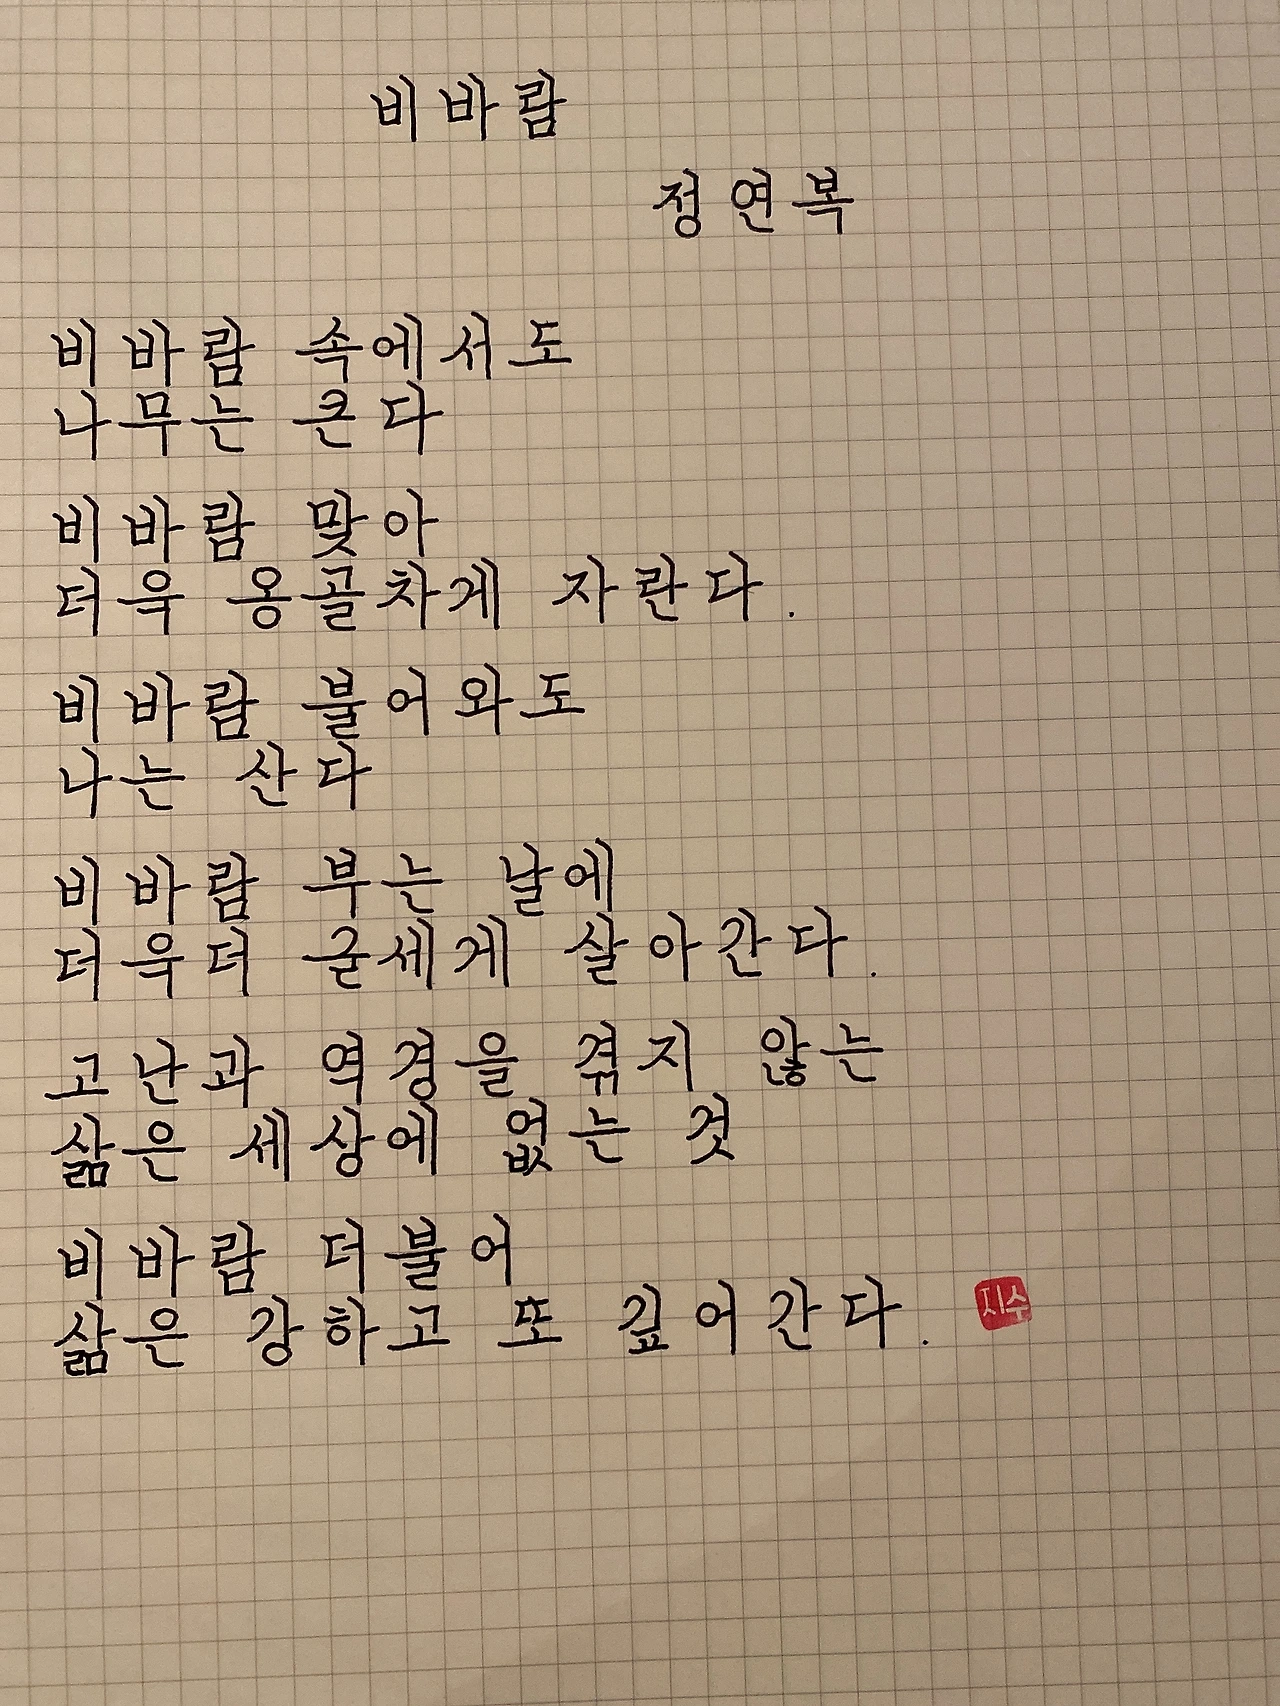 비바람
정연복
비바람 속에서도
나무는 큰다
비바람 맞아
더욱 옹골차게 자란다.
비바람 불어와도
나는 산다
비바람 부는 날에
더욱더 굳세게 살아간다.
고난과 역경을 겪지 않는
삶은 세상에 없는 것
비바람 더불어
삶은 강하고 또 깊어간다.
지수